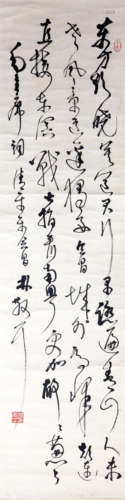 东方欲晓莫道君行早踏遍青山人未
老风景这边独好会昌城外高峰颠连
直接东溟战士指看南粤更加郁郁葱葱
毛主席词清平乐会昌 林散耳